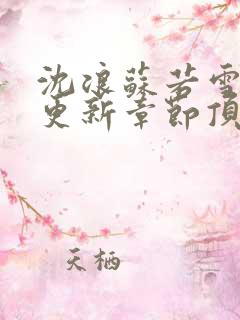 沈浪蘇若雪
更新章節頂
天栖